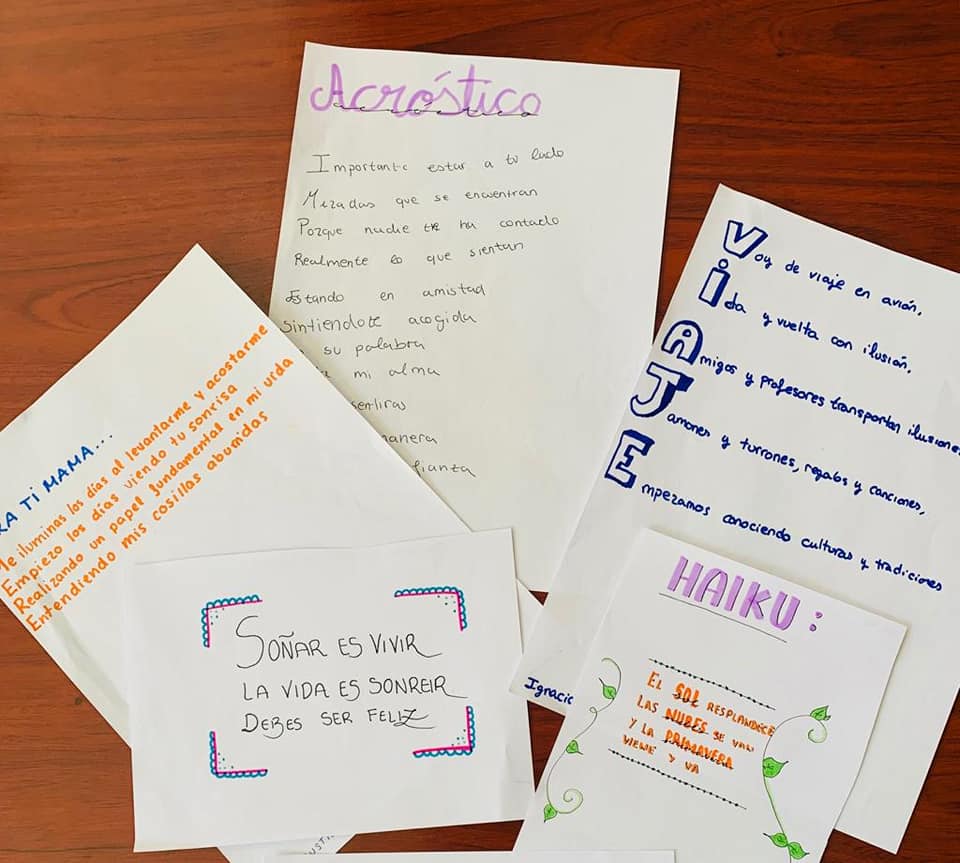 Acróstico
Importante estar a tu lado
Miradas que se encuentran
Porque nadie te ha contado
Realmente lo que sientan
Estando en amistad
Sintiendote acogida
su palabra
mi alma
sentiras
manera
fianza
RA TI MAMA...
Me iluminas los días al levantarme y acostarme
Empiezo los días viendo tu sonrisa
Realizando un papel fundamental en mi vida
Entendiendo mis cosillas absurdas
Voy de viaje en avión,
ida y vuelta con ilusión,
Amigos y profesores transportan ilusione
Jamones y turrones, regalos y canciones,
Empezamos conociendo culturas y tradiciones
Ignacio
SOÑAR ES VIVIR
LA VIDA ES SONREIR
DEBES SER FELIZ
HAIKU:
EL SOL RESPLANDECE
LAS NUBES SE VAN
Y LA PRIMAVERA
VIENE Y VA